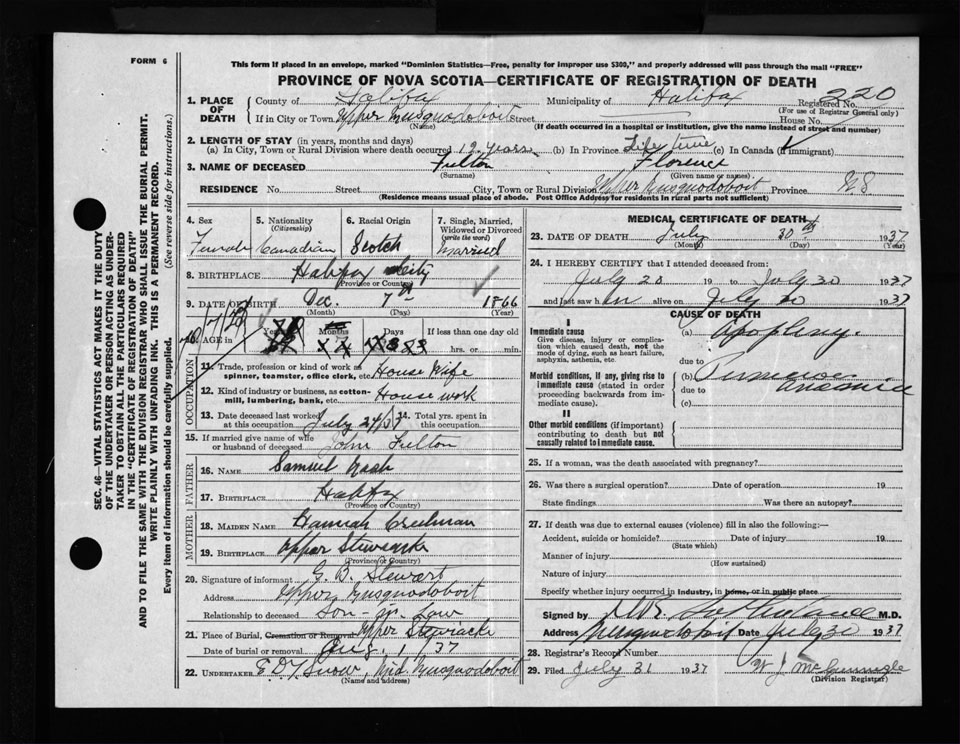 FORM 6
This form if placed in an envelope, marked "Dominion Statistics—Free, penalty for improper use $300," and properly addressed will pass through the mail "FREE"
PROVINCE OF NOVA SCOTIA—CERTIFICATE OF REGISTRATION OF DEATH
220
1. PLACE OF DEATH
County of Halifax Municipality of Halifax Registered No.
(For use of Registrar General only)
If in City or Town Upper Musquodoboit Street House No.
(Name) (If death occurred in a hospital or institution, give the name instead of street and number)
2. LENGTH OF STAY (in years, months and days)
(a) In City, Town or Rural Division where death occurred 12 years (b) In Province Life time (c) In Canada (if immigrant)
3. NAME OF DECEASED Fulton Florence
(Surname) (Given name or names)
RESIDENCE No. Street City, Town or Rural Division Upper Musquodoboit Province N S
(Residence means usual place of abode. Post Office Address for residents in rural parts not sufficient)
SEC. 46—VITAL STATISTICS ACT MAKES IT THE DUTY
OF THE UNDERTAKER OR PERSON ACTING AS UNDER-
TAKER TO OBTAIN ALL THE PARTICULARS REQUIRED
IN THE "CERTIFICATE OF REGISTRATION OF DEATH"
AND TO FILE THE SAME WITH THE DIVISION REGISTRAR WHO SHALL ISSUE THE BURIAL PERMIT.
WRITE PLAINLY WITH UNFADING INK. THIS IS A PERMANENT RECORD.
Every item of information should be carefully supplied. (See reverse side for instructions.)
4. Sex 5. Nationality (Citizenship) 6. Racial Origin 7. Single, Married, Widowed or Divorced (write the word)
Female Canadian Scotch Married
8. BIRTHPLACE Halifax City
(Province or Country)
9. DATE OF BIRTH Dec. 7th 1866
(Month) (Day) (Year)
10. AGE in Years Months Days If less than one day old
70/7/23
hrs. or min.
OCCUPATION
11. Trade, profession or kind of work as spinner, teamster, office clerk, etc. House Wife
12. Kind of industry or business, as cotton-mill, lumbering, bank, etc. House work
13. Date deceased last worked at this occupation July 24/37 14. Total yrs. spent in this occupation
15. If married give name of wife or husband of deceased John Fulton
FATHER
16. NAME Samuel Nash
17. BIRTHPLACE Halifax
(Province or Country)
MOTHER
18. MAIDEN NAME Hannah Creelman
19. BIRTHPLACE Upper Stewiacke
(Province or Country)
20. Signature of informant G. B. Stewart
Address Upper Musquodoboit
Relationship to deceased Son-in-Law
21. Place of Burial, Cremation or Removal Upper Stewiacke
Date of burial or removal Aug. 1/37
22. UNDERTAKER Mid Musquodoboit
(Name and address)
MEDICAL CERTIFICATE OF DEATH
23. DATE OF DEATH July 30th 1937
(Month) (Day) (Year)
24. I HEREBY CERTIFY that I attended deceased from:
July 20 19 to July 30 1937
and last saw her alive on July 30 1937
CAUSE OF DEATH
I
Immediate cause
Give disease, injury or complication which caused death, not the mode of dying, such as heart failure, asphyxia, asthenia, etc.
(a) Apoplexy.
due to
Morbid conditions, if any, giving rise to immediate cause (stated in order proceeding backwards from immediate cause).
(b) Pernicious Anaemia
due to
(c)
II
Other morbid conditions (if important) contributing to death but not causally related to immediate cause.
25. If a woman, was the death associated with pregnancy?
26. Was there a surgical operation? Date of operation 19
State findings Was there an autopsy?
27. If death was due to external causes (violence) fill in also the following:—
Accident, suicide or homicide? Date of injury 19
(State which)
Manner of injury
(How sustained)
Nature of injury
Specify whether injury occurred in Industry, in home, or in public place
Signed by M.D.
Address Musquodoboit Date July 30 1937
28. Registrar's Record Number
29. Filed July 31 1937
(Division Registrar)